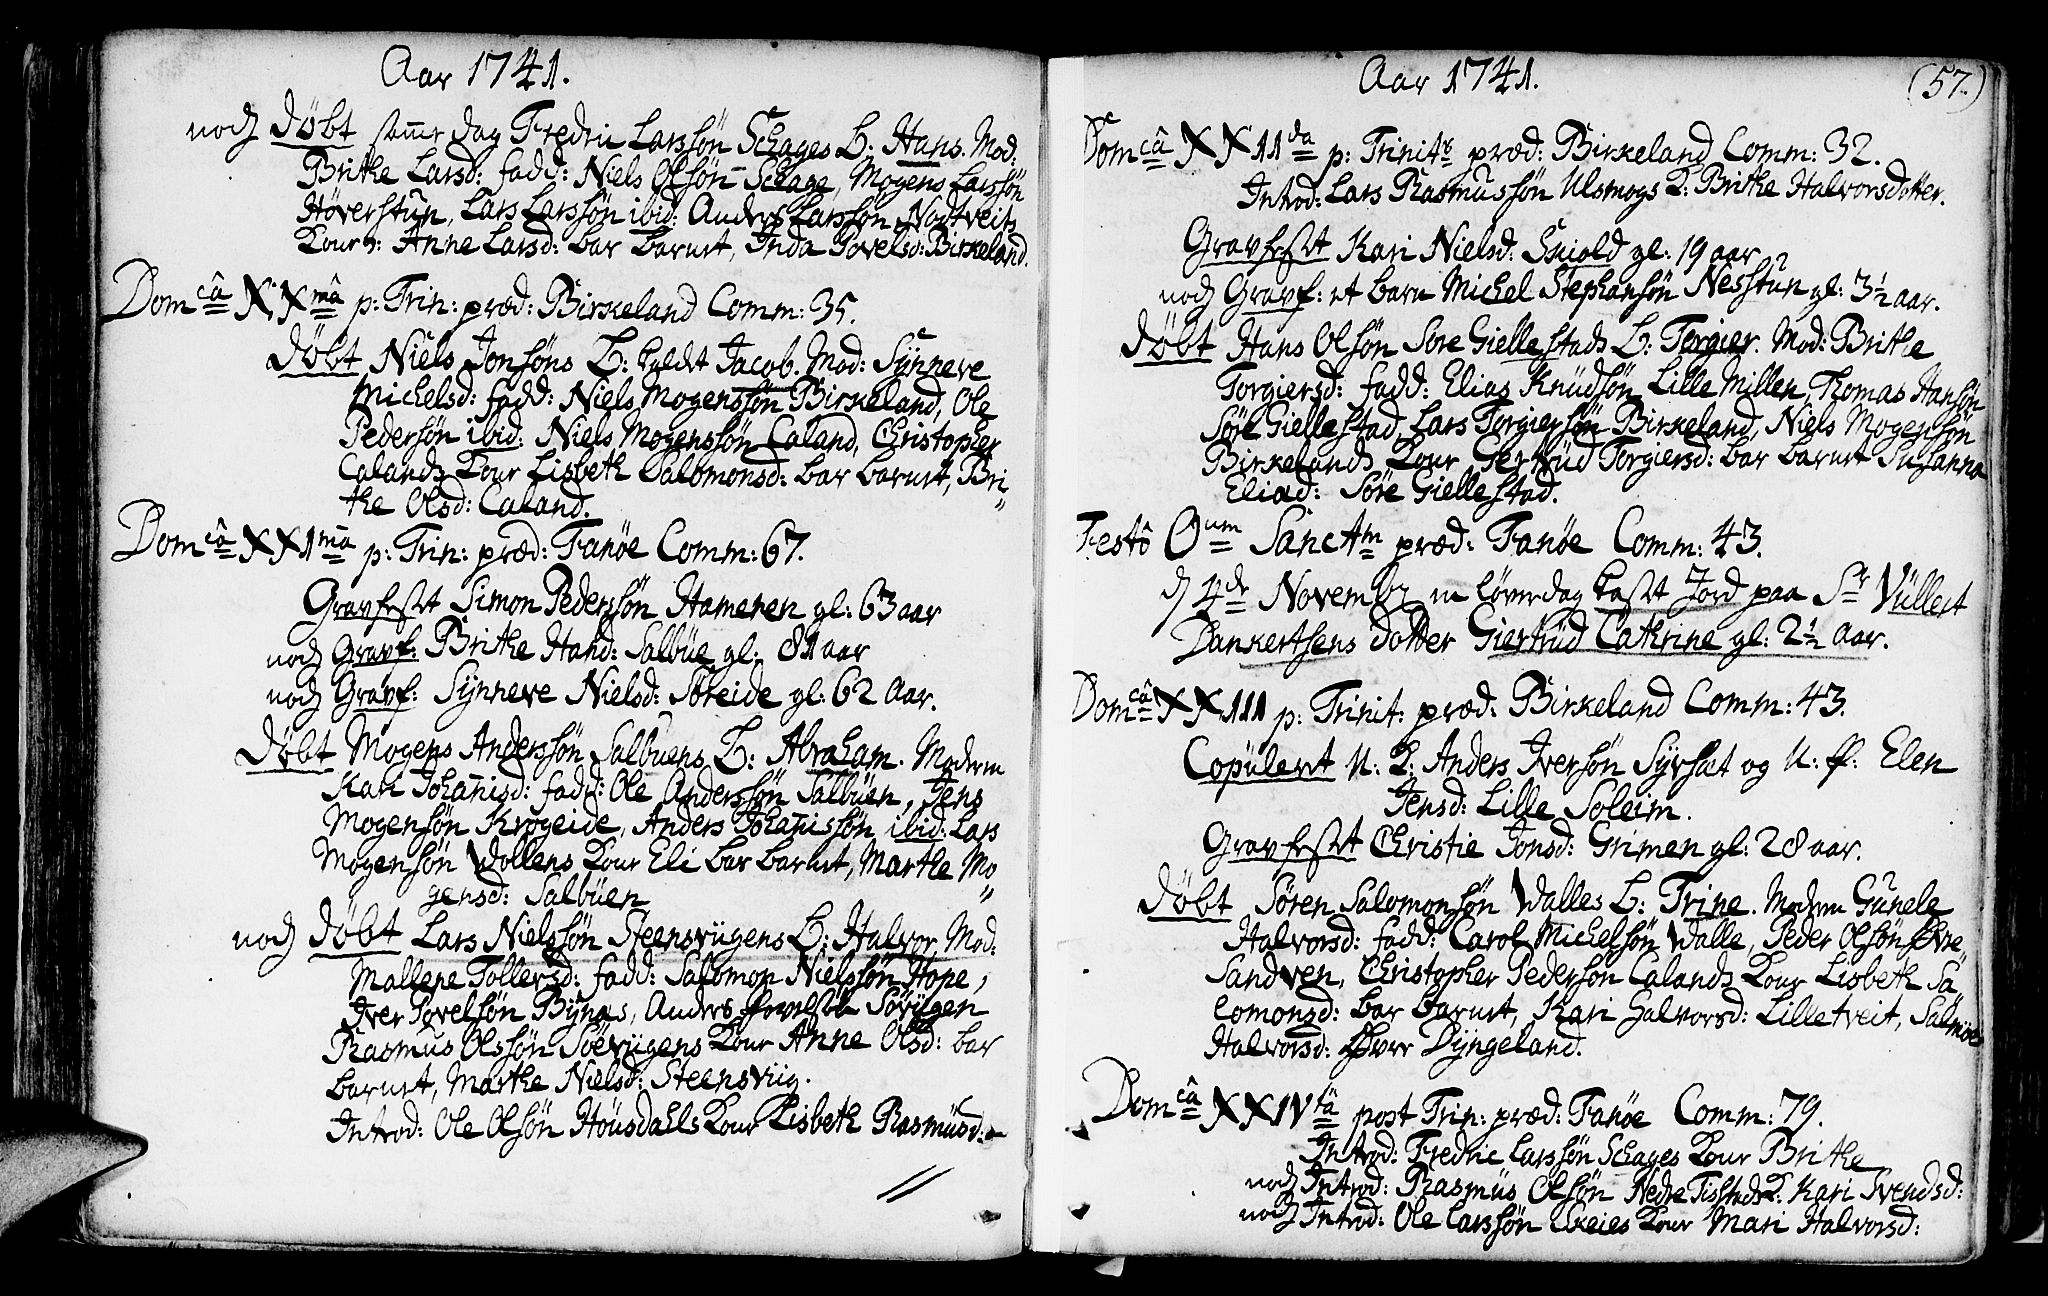 Aar 1741.
noch Døbt samme dag Fredric Larssøn Schages B: Hans. Mod:
Brithe Larsd: fadd: Niels Olsøn Schage, Mogens Larssøn
Høverstün, Lars Larssøn ibid: Anders Larssøn Nodtveits
Kone: Anne Larsd: bar barnet, Inda Povelsd: Birkeland.
Domcâ XXmâ p: Trin: præd: Birkeland Comm: 35.
Døbt Niels Jonsøns B: kaldt Jacob. Mod: Sÿnneve
Michelsd: fadd: Niels Mogenssøn Birkeland, Ole
Pedersøn ibid: Niels Mogenssøn Caland, Christopher
Calands Kone Lisbeth Salomonsd: bar barnet, Bri-
the Olsd: Caland.
Domcâ XX1mâ p: Trin: præd: Fanøe Comm: 67.
Gravfest Simon Pederssøn Hameren gl: 63 aar
noch Gravf: Brithe Hansd: Salbüe gl: 81 aar
noch Gravf: Sÿnneve Nielsd: Søreide gl: 62 Aar.
Døbt Mogens Anderssøn Salbuens B: Abraham. Moderen
Kari Johanisd: fadd: Ole Anderssøn Salbüen, Jens
Mogensøn Krogeide, Anders Johanissøn ibid: Lars
Mogensøn Wollens Kone Eli bar barnet, Marthe Mo-
gensd: Salbüen
noch Døbt Lars Nielssøn Steensvügens B: Halvor. Mod:
Mallene Tollersd: fadd: Salomon Nielssøn Hope,
Iver Povelsøn Bÿnas, Anders Povelsøn Søvügen
Rasmus Olssøn Søevügens Kone Anne Olsd: bar
barnet, Marthe Nielsd: Steensviig.
Introd: Ole Olsøn Housdahls Kone Lisbeth Rasmüsd:
Aar 1741. (57.)
Domcâ XX11da p: Trinits præd: Birkeland Comm: 32.
Introd: Lars Rasmussøn Ulsmogs K: Brithe Halvorsdotter.
Gravfest Kari Nielsd: Skiold gl: 19 aar
noch Gravf: et barn Michel Stephansøn Nesstün gl: 3½ aar.
Døbt Hans Olsøn Søre Giellestads B: Torgier. Mod: Brithe
Torgiersd: fadd: Elias Knüdsøn Lille Millen, Thomas Hansøn
Søre Giellestad, Lars Torgiersøn Birkeland, Niels Mogensøn
Birkelands Kone Gertrüd Torgiersd: bar barnet Susanna
Eliæd: Søre Giellestad.
Festô Oum Sanctm præd: Fanøe Comm: 43.
d 4de Novembr en løverdag kast Jord paa Sr Vüllert
Dankertsens dotter Giertrüd Cathrine gl: 2½ Aar.
Domcâ XX111 p: Trinit: præd: Birkeland Comm: 43.
Copüleret U: K: Anders Iversøn Sÿvsæt og U: P: Elen
Jensd: Lille Soleim.
Gravfest Christie Jonsd: Grimen gl: 28 aar.
Døbt Søren Salomonsøn Walles B: Trine. Moderen Günele
Halvorsd: fadd: Carol Michelsøn Walle, Peder Olsøn Øvre
Sandven, Christopher Pedersøn Calands Kone Lisbeth Sa-
lomonsd: bar barnet, Kari Halvorsd: Lilletveit, Salmoe
Halvorsd: Øvre Dÿngeland.
Domcâ XXIVtâ post Trin: præd: Fanøe Comm: 79.
Introd: Fredric Larssøn Schages Kone Brithe
noch Introd: Rasmüs Olsøn Nedre Tisstads K: Kari Svendsd:
noch Introd: Ole Larssøn Skeies Kone Mari Halvorsd: